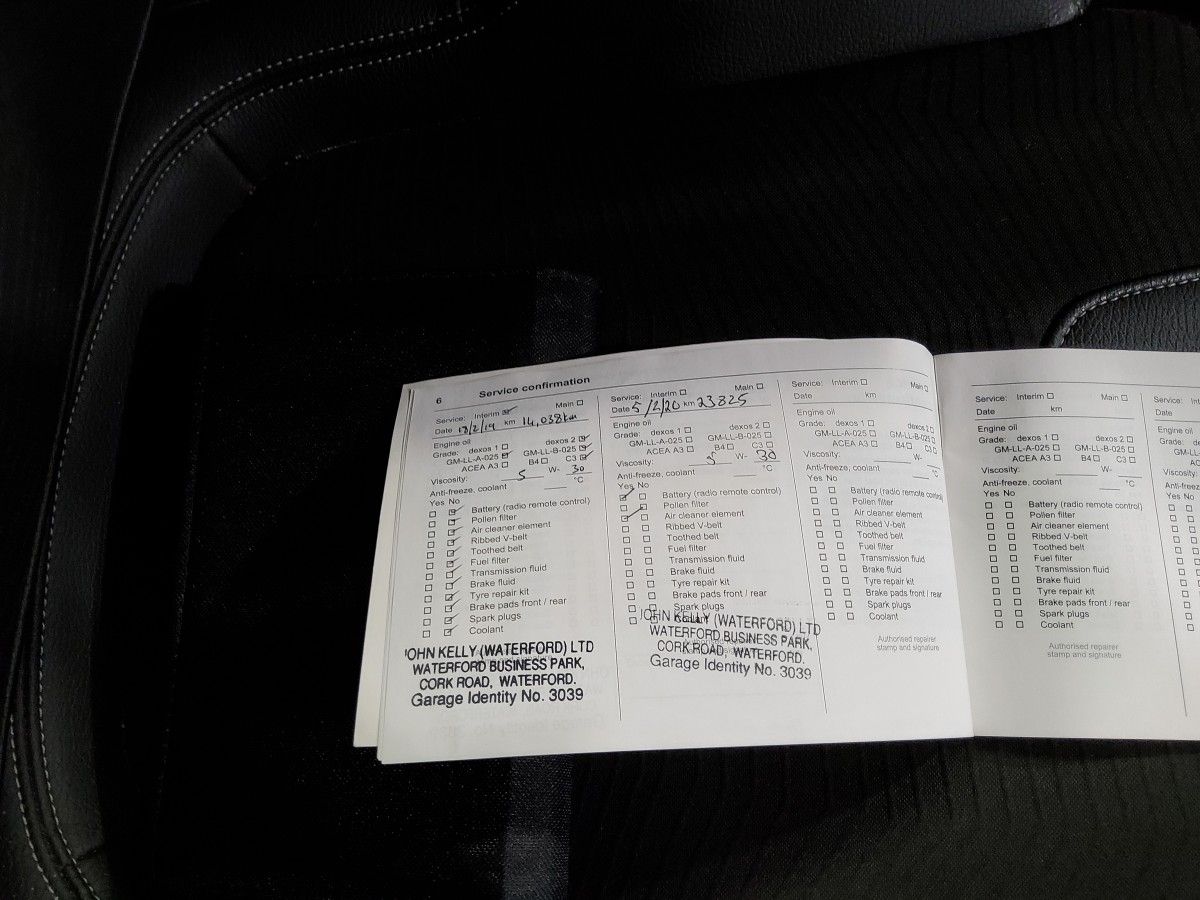 6 Service confirmation
Service: Interim Main
Date 13/2/19 km 14,038km
Engine oil
Grade: dexos 1 dexos 2
GM-LL-A-025 GM-LL-B-025
ACEA A3 B4 C3
Viscosity: 5 W- 30
Anti-freeze, coolant °C
Yes No
Battery (radio remote control)
Pollen filter
Air cleaner element
Ribbed V-belt
Toothed belt
Fuel filter
Transmission fluid
Brake fluid
Tyre repair kit
Brake pads front / rear
Spark plugs
Coolant
JOHN KELLY (WATERFORD) LTD
WATERFORD BUSINESS PARK,
CORK ROAD, WATERFORD.
Garage Identity No. 3039
Service: Interim Main
Date 5/2/20 km 23825
Engine oil
Grade: dexos 1 dexos 2
GM-LL-A-025 GM-LL-B-025
ACEA A3 B4 C3
Viscosity: 5 W- 30
Anti-freeze, coolant °C
Yes No
Battery (radio remote control)
Pollen filter
Air cleaner element
Ribbed V-belt
Toothed belt
Fuel filter
Transmission fluid
Brake fluid
Tyre repair kit
Brake pads front / rear
Spark plugs
Coolant
JOHN KELLY (WATERFORD) LTD
WATERFORD BUSINESS PARK,
CORK ROAD, WATERFORD.
Garage Identity No. 3039
Service: Interim Main
Date km
Engine oil
Grade: dexos 1 dexos 2
GM-LL-A-025 GM-LL-B-025
ACEA A3 B4 C3
Viscosity: W-
Anti-freeze, coolant °C
Yes No
Battery (radio remote control)
Pollen filter
Air cleaner element
Ribbed V-belt
Toothed belt
Fuel filter
Transmission fluid
Brake fluid
Tyre repair kit
Brake pads front / rear
Spark plugs
Coolant
Authorised repairer
stamp and signature
Service: Interim Main
Date km
Engine oil
Grade: dexos 1 dexos 2
GM-LL-A-025 GM-LL-B-025
ACEA A3 B4 C3
Viscosity: W-
Anti-freeze, coolant °C
Yes No
Battery (radio remote control)
Pollen filter
Air cleaner element
Ribbed V-belt
Toothed belt
Fuel filter
Transmission fluid
Brake fluid
Tyre repair kit
Brake pads front / rear
Spark plugs
Coolant
Authorised repairer
stamp and signature
Service:
Date
Engine oil
Grade:
Viscosity:
Anti-freeze,
Yes No